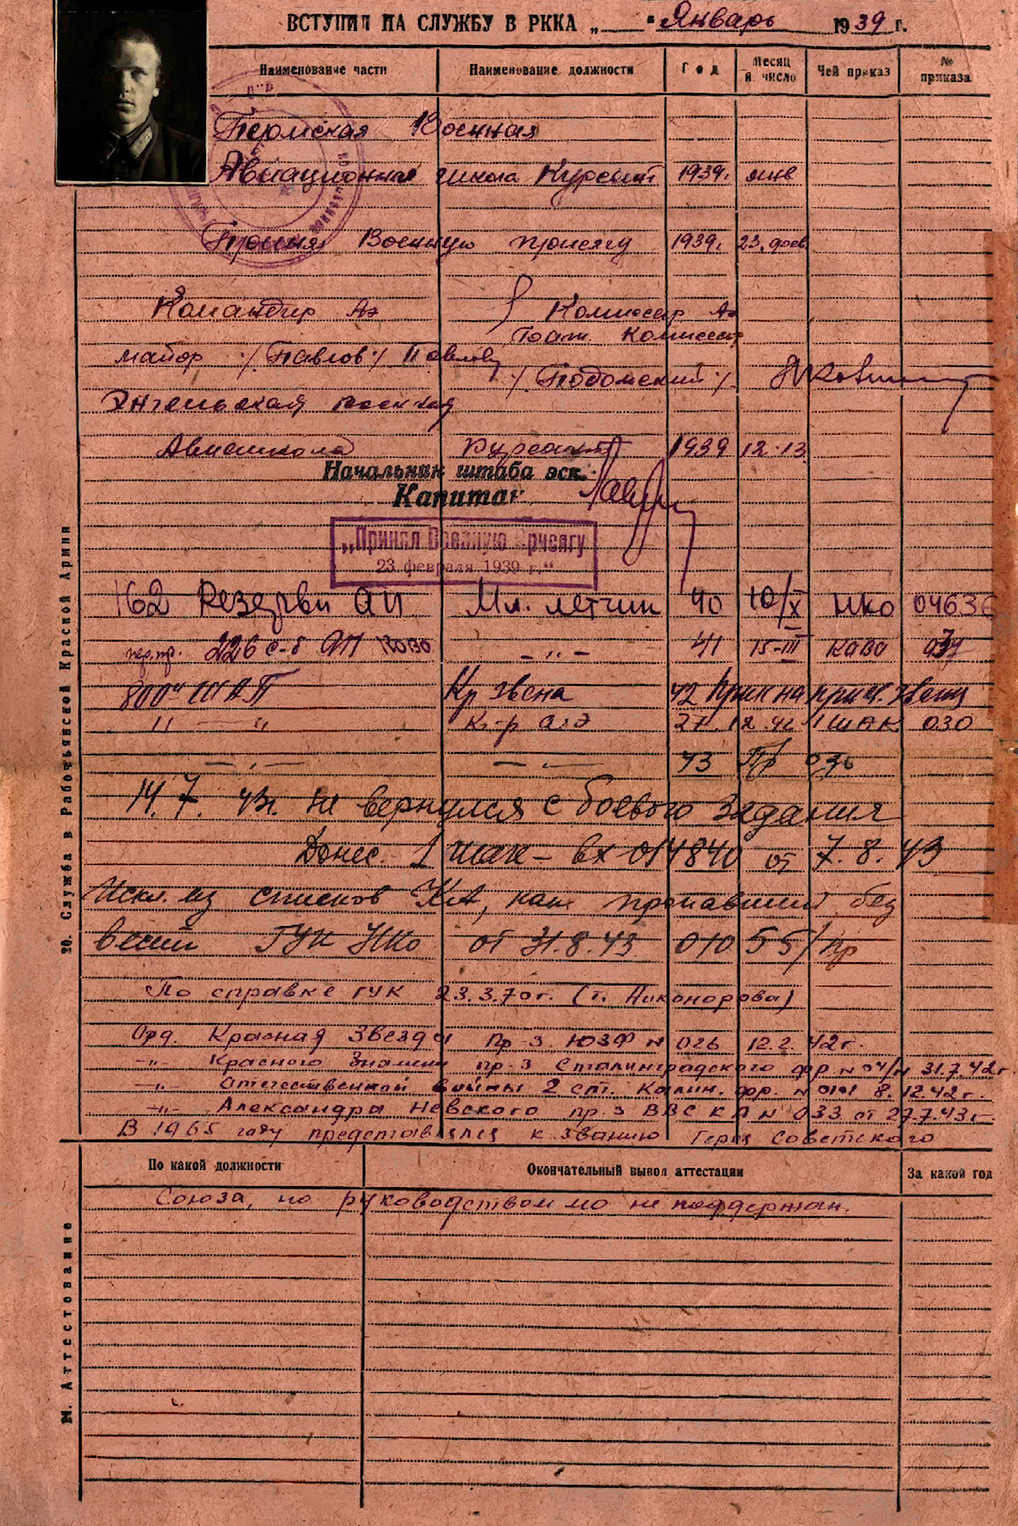 ВСТУПИЛ НА СЛУЖБУ В РККА „ “ Январь 1939 г.
Наименование части Наименование должности Год Месяц и число Чей приказ № приказа
Пермская Военная
Авиационная школа Курсант 1939г. янв
Принял Военную присягу 1939г. 23. фев
Командир Аэ Комиссар Аэ
Бат. Комиссар
майор /Павлов/ Павлов
/Подомский/
Энгельская военная
Авиашкола курсант 1939 12.13
Начальник штаба эск.
Капитан
„Принял Военную присягу
23 февраля 1939 г.“
162 Резервн АП Мл. летчик 40 10/X НКО 04636
226 с-б АП КОВО — „ — 41 15-III КОВО
800й ШАП Кр звена 42
„ — „ К-р аэ 27.12.42 1 ШАК 030
— „ — — „ — 43 Пр 036
14.7.43г. Не вернулся с боевого задания
Донес. 1 шак – вх 014840 от 7.8.43
Искл. из списков КА, как пропавший без
вести ГУК НКО от 31.8.43 01055/пр
По справке ГУК 23.3.70г. (т. Никонорова)
Орд. Красная Звезда пр-з ЮЗФ № 026 12.2.42г.
—„— Красного Знамени пр-з Сталинградского фр № 04/н 31.7.42г.
—„— Отечественной войны 2 ст. Калин. фр. 8.12.42г.
—„— Александра Невского пр.з ВВС КА № 033 от 27.7.43г.
В 1965 году представлялся к званию Героя Советского
По какой должности Окончательный вывод аттестации За какой год
Союза, но руководством мо не поддержан.
20. Служба в Рабоче-Крестьянской Красной Армии
21. Аттестование